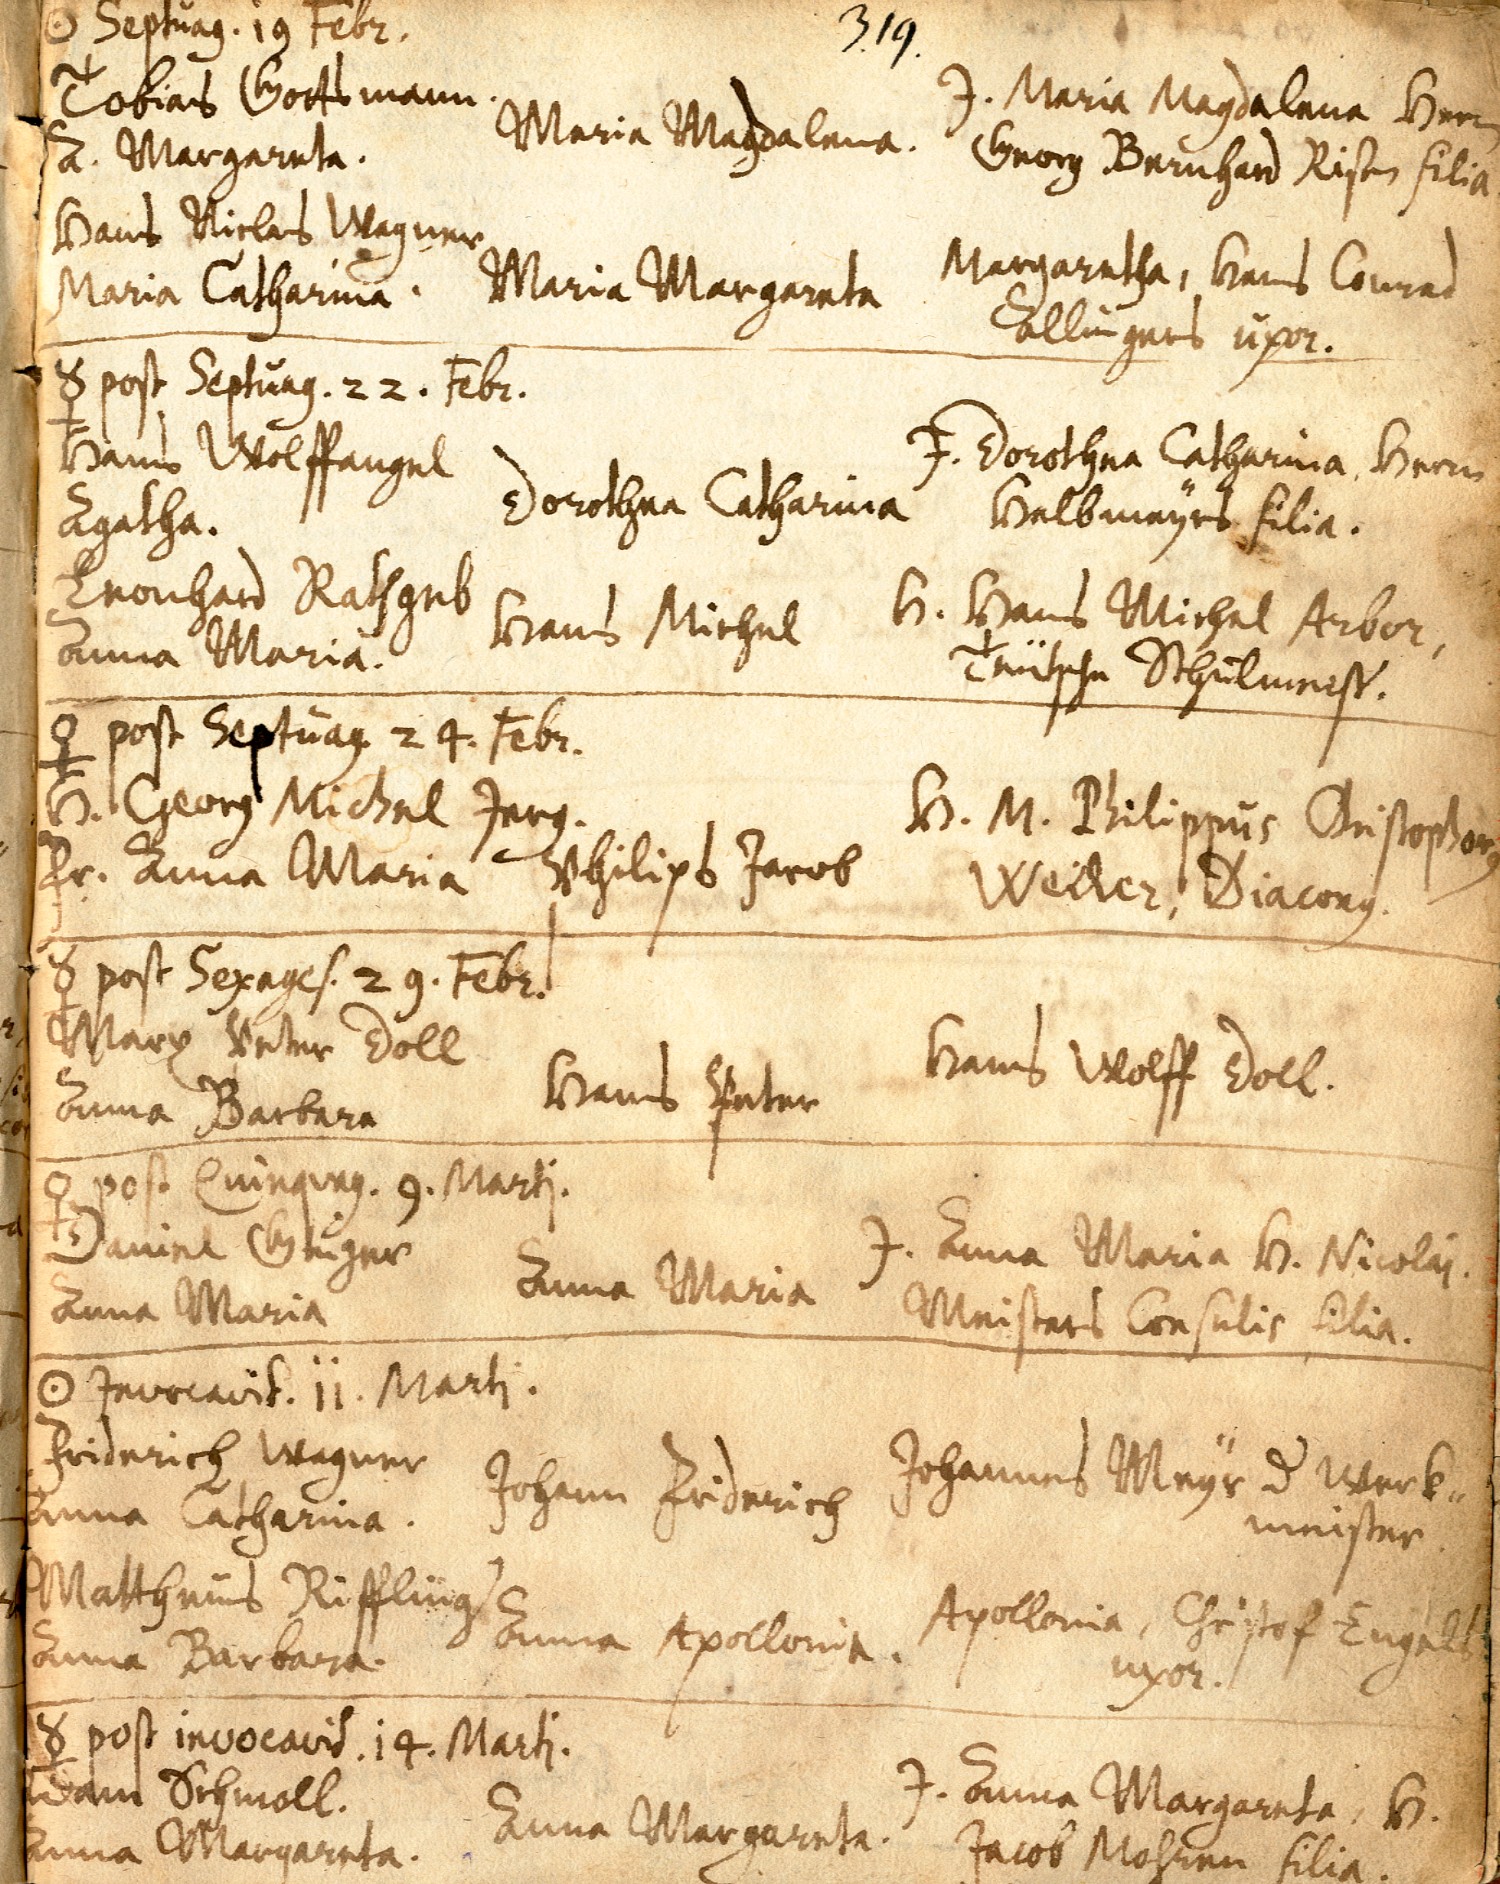 ☉ Septuag. 19 Febr.
319.
Tobias Gottsmann.
A. Margareta.
Maria Magdalena.
J. Maria Magdalena Herrn
Georg Bernhard Risen filia
Hans Niclas Wagner
Maria Catharina.
Maria Margareta
Margaretha, Hans Conrad
Dallingers uxor.
☿ post Septuag. 22. Febr.
Hans Wolffangel
Agatha.
Dorothea Catharina
J. Dorothea Catharina, Herrn
Halbmayrs filia.
Leonhard Rathgeb
Anna Maria.
Hans Michel
H. Hans Michel Arbor,
Teütsche Schulmeist.
♀ post Septuag. 24. Febr.
H. Georg Michel Jerg.
Fr. Anna Maria
Philips Jacob
H. M. Philippus Christophorus
Weiker, Diaconus.
☿ post Sexages. 29. Febr.
Marx Peter Doll
Anna Barbara
Hans Peter
Hans Wolff Doll.
♀ post Quinquag. 9. Martij.
Daniel Geiger
Anna Maria
Anna Maria
J. Anna Maria H. Nicolaj.
Meisters Consulis filia.
☉ Invocavit. 11. Martij.
Friderich Wagner
Anna Catharina.
Johann Friderich
Johannes Meÿr d Werk-
meister
Mattheus Riffling
Anna Barbara.
Anna Apollonia.
Apollonia, Christof Engels
uxor.
☿ post invocavit. 14. Martij.
Adam Schmoll.
Anna Margareta.
Anna Margareta.
J. Anna Margareta, H.
Jacob Mohren filia.